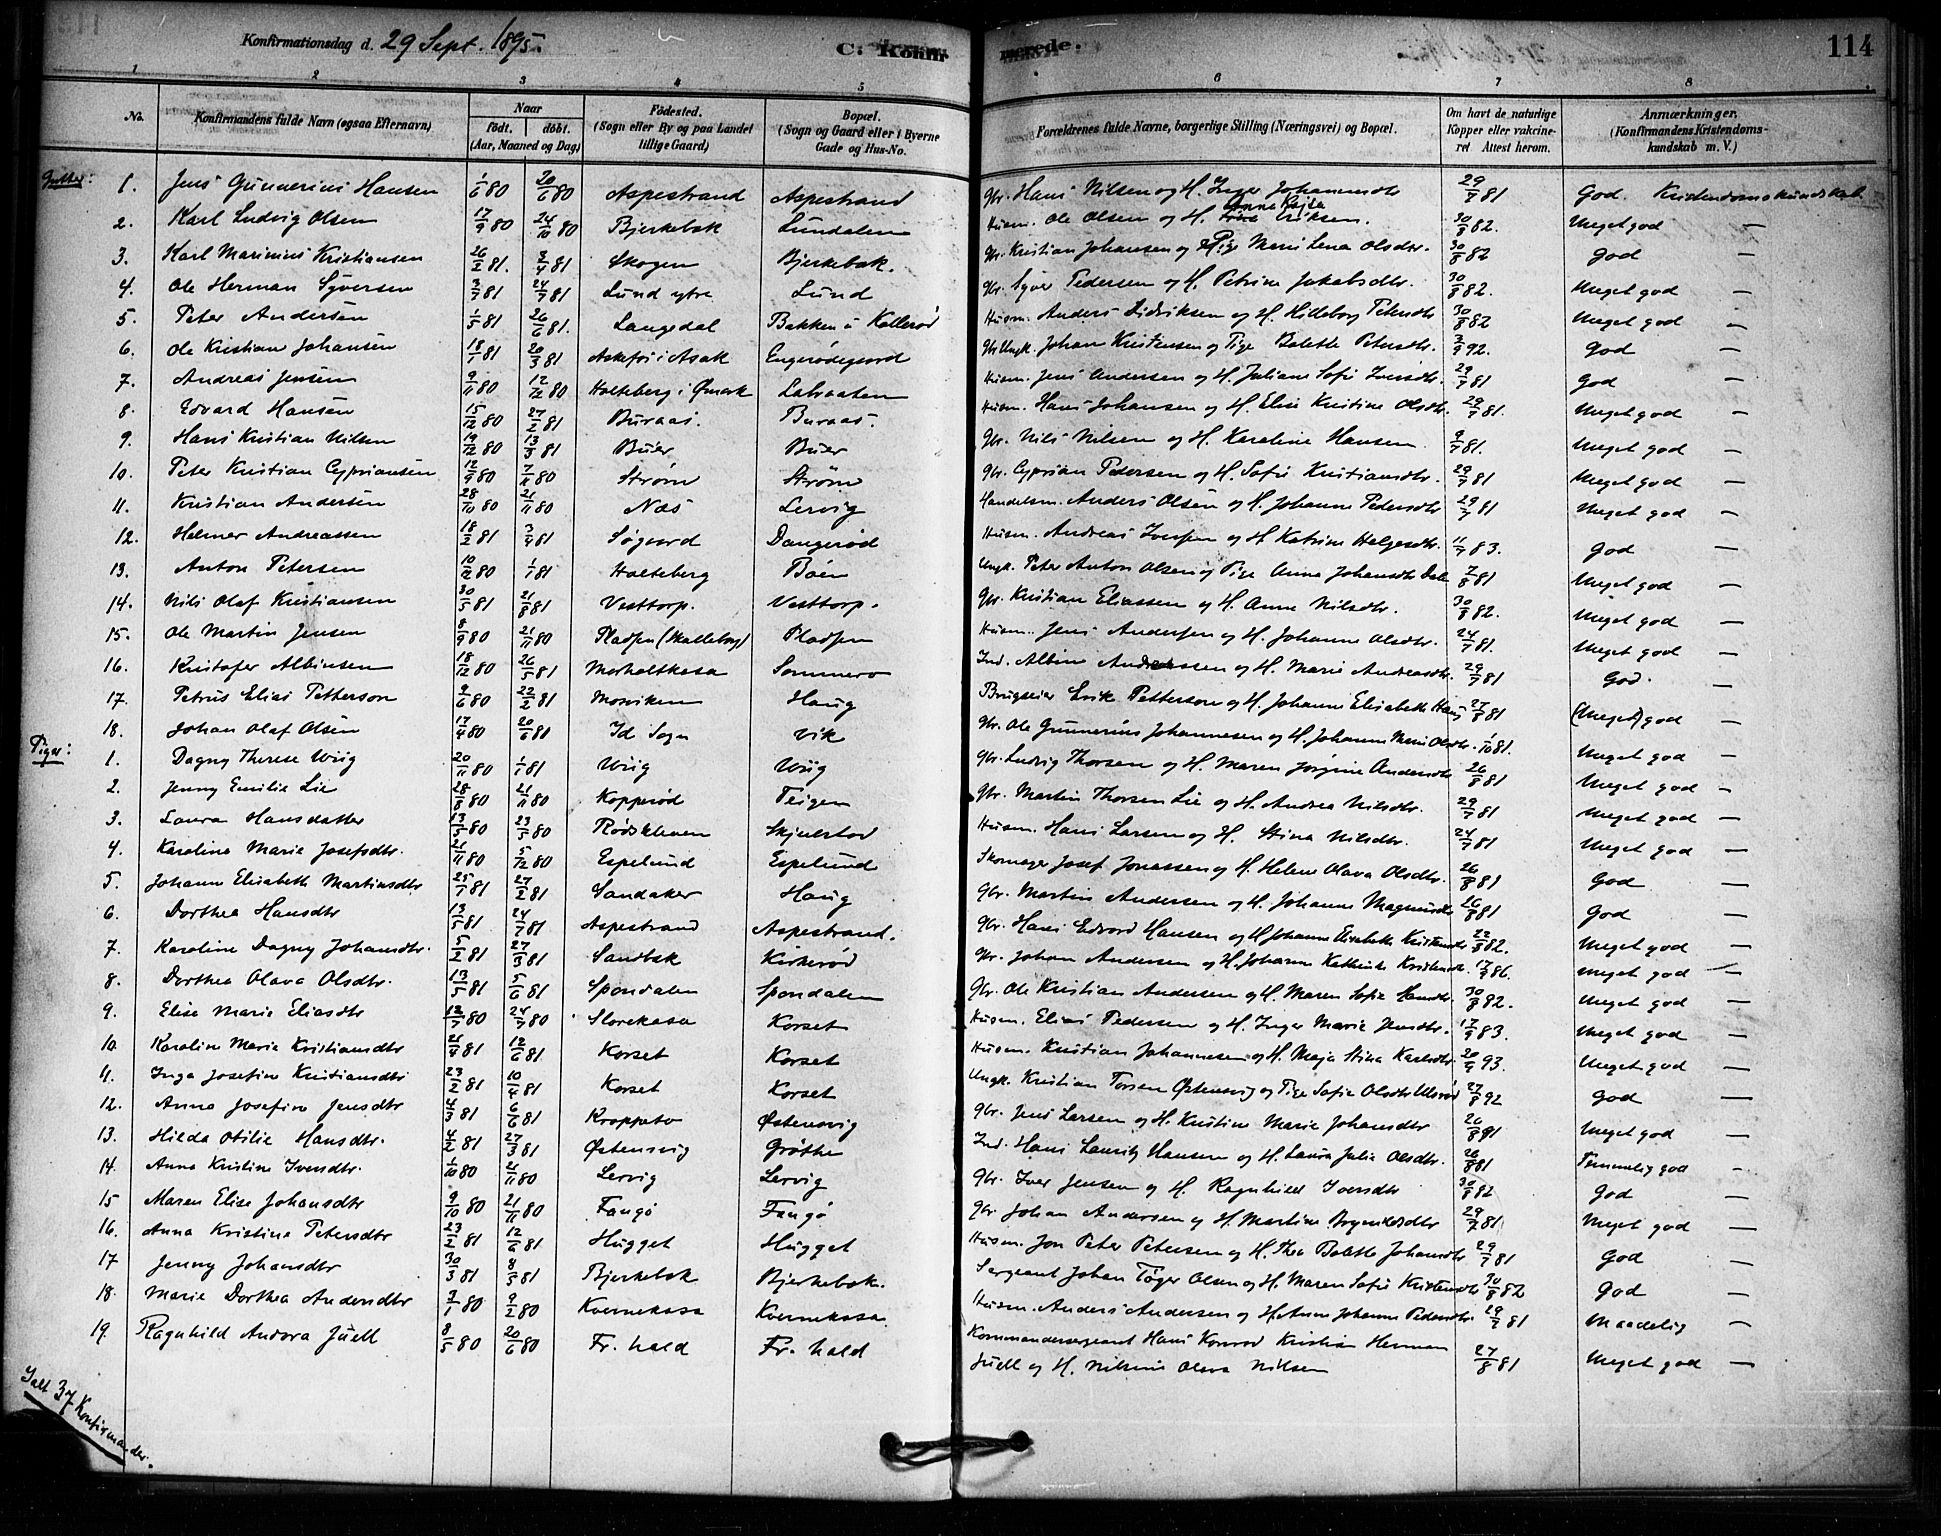 Konfirmationsdag d. 29 Sept. 1895.
C. Konfirmerede.
114
1 2 3 4 5 6 7 8
No. Konfirmandens fulde Navn (ogsaa Efternavn) Naar født. døbt. (Aar, Maaned og Dag) Fødested. (Sogn eller By og paa Landet tillige Gaard) Bopæl. (Sogn og Gaard eller i Byerne Gade og Hus-No. Forældrenes fulde Navne, borgerlige Stilling (Næringsvei) og Bopæl. Om havt de naturlige Kopper eller vakcineret Attest herom. Anmærkninger. (Konfirmandens Kristendomskundskab m. V.)
Gutter:
1. Jens Gunnerius Hansen 1/6 80 20/6 80 Aspestrand Aspestrand Gbr. Hans Nilsen og H. Inger Johannesdtr 29/7 81 God Kristendomskundskab
2. Karl Ludvig Olsen 17/9 80 24/10 80 Bjerkebæk Lundalen Husm. Ole Olsen og H. Anne Kajsa Eriksen. 30/8 82. Meget god —
3. Karl Marinius Kristiansen 26/2 81. 3/4 81 Skogen Bjerkebæk. Gbr. Kristian Johansen og Pige Maren Lena Olsdtr. 30/8 82 God —
4. Ole Herman Syversen 3/7 81 24/7 81 Lund ytre Lund Gbr. Syver Pedersen og H. Petrine Jakobsdtr. 30/8 82. Meget god —
5. Peter Andersen 1/5 81 26/6 81. Langedal Bakken u Kollerød Husm. Anders Didriksen og H. Hilleborg Petersdtr 30/8 82 Meget god —
6. Ole Kristian Johansen 18/1 81 20/3 81 Askefri i Asak Engerødegaard Ungk. Johan Kristensen og Pige Bolette Petersdtr. 3/9 92. God —
7. Andreas Jensen 9/11 80 12/12 80 Holteberg i Ømark Labraaten Husm. Jens Andersen og H. Juliane Sofie Iversdtr. 29/7 81 God —
8. Edvard Hansen 15/12 80 27/2 81 Buraas. Buraas. Husm. Hans Johansen og H. Elise Kristine Olsdtr. 29/7 81. Meget god —
9. Hans Kristian Nilsen 19/12 80 13/3 81 Buer Buer Gbr. Nils Nilsen og H. Karoline Hansen 9/7 81. Meget god —
10. Peter Kristian Cypriansen 12/9 80 7/11 80 Strøm Strøm Gbr. Cyprian Pedersen og H. Sofie Kristiansdtr. 29/7 81 Meget god —
11. Kristian Andersen 28/10 80 21/11 80 Næs Lervig Handelsm. Anders Olsen og H. Johanne Pedersdtr 29/7 81 Meget god —
12. Helmer Andreassen 18/2 81 3/4 81 Søgaard Dangerød Husm. Andreas Iversen og H Katrine Helgesdtr. 11/7 83. God —
13. Anton Petersen 10/12 80 1/1 81 Holteberg Båen Ungk. Peter Anton Olsen og Pige Anna Johansdtr Dale 7/8 81 Meget god —
14. Nils Olaf Kristiansen 30/5 81 21/8 81 Vesttorp. Vesttorp. Gbr. Kristian Eliassen og H. Anne Nilsdtr. 30/8 82. Meget god —
15. Ole Martin Jensen 8/9 80 21/11 80 Pladsen (Skalleberg) Pladsen Husm. Jens Andersen og H. Johanne Olsdtr. 24/7 81. Meget god —
16. Kristofer Albinsen 18/12 80 26/5 81 Morholtkasa Sommero Ind. Albin Andreassen og H. Marie Andreasdtr. 29/7 81 God. —
17. Petrus Elias Petterson 9/6 80 22/2 81 Mosviken Haug Brugseier Erik Petterson og H. Johanne Elisabeth Haug 27/8 81 (Meget) god —
18. Johan Olaf Olsen 17/4 80 20/6 81 Id Sogn Vik Gbr. Ole Gunnerius Johannesen og H. Johanne Marie Olsdtr. 1/10 81. Meget god —
Piger:
1. Dagny Therese Wiig 20/11 80 1/1 81 Wiig Wiig Gbr. Ludvig Thorsen og H. Maren Jørgine Andersdtr 26/8 81 Meget god —
2. Jenny Emilie Lie 28/8 80 21/11 80 Kopperød Teigen Gbr. Martin Thorsen Lie og H. Andrea Nilsdtr. 29/7 81 Meget god —
3. Laura Hansdatter 13/3 80 23/5 80 Rødskleven Skjulstad Husm. Hans Larsen og H. Stina Nilsdtr. 24/7 81 Meget god —
4. Karoline Marie Josefsdtr. 21/11 80 5/12 80 Espelund Espelund Skomager Josef Jonassen og H. Helene Olava Olsdtr. 26/8 81 God —
5. Johanne Elisabeth Martinsdtr 25/1 81 27/2 81 Sandaker Haug Gbr. Martin Andersen og H. Johanne Magnusdtr 26/8 81 God —
6. Dorthea Hansdtr 13/5 81 24/7 81 Aspestrand Aspestrand. Gbr. Hans Edvard Hansen og H Johanne Elisabeth Kristensdtr 22/8 82. Meget god —
7. Karoline Dagny Johansdtr. 5/2 81 27/3 81 Sandbæk Kirkerød Gbr. Johan Andersen og H. Johanne Kathinka Kristensdtr. 17/9 86. Meget god —
8. Dorthea Olava Olsdtr. 13/5 81 5/6 81 Spondalen Spondalen Gbr. Ole Kristian Andersen og H. Maren Sofie Hansdtr. 30/8 82. Meget god —
9. Elise Marie Eliasdtr 12/7 80 24/7 80 Slorekasa Korset Husm. Elias Pedersen og H. Inger Marie Jensdtr. 17/9 83. Meget god —
10. Karoline Marie Kristiansdtr 21/4 81 12/6 81 Korset Korset Husm. Kristian Johannesen og H. Maja Stina Karlsdtr. 20/9 93. Meget god —
11. Inga Josefine Kristiansdtr 23/2 81 10/4 81 Korset Korset Ungk. Kristian Torsen Østensvig og Pige Sofie Olsdtr 27/8 92 God —
12. Anna Josefine Jensdtr 4/3 81 6/6 81 Kroppeto Østensvig Gbr. Jens Larsen og H. Kristine Marie Johansdtr 26/8 91 Meget god —
13. Hilda Otilie Hansdtr. 4/2 81 27/3 81 Østensvig Grøthe Ind. Hans Lauritz Hansen og H. Laura Julie Olsdtr. 26/8 81 Temmelig god —
14. Anna Kristine Iversdtr. 1/10 80 21/11 80 Lervig Lervig Gbr. Iver Jensen og H. Ragnhild Iversdtr 30/8 82 God —
15 Maren Elise Johansdtr 9/10 80 21/11 80 Fangø Fangø Gbr Johan Andersen og H. Martine Brynildsdtr 29/7 81 Meget god —
16. Anna Kristine Petersdtr 23/2 81 12/6 81 Hugget Hugget Husm. Jon Peter Petersen og H. Thea Bolette Johansdtr 29/7 81 God —
17 Jenny Johansdtr 30/3 81 8/5 81 Bjerkebæk Bjerkebæk. Sergeant Johan Tøger Olsen og H. Maren Sofie Kristensdtr 30/8 82 God —
18. Marie Dorthea Andersdtr 3/1 80 9/2 80 Kvernekasa Kvernekasa Husm. Anders Andersen og H. Anne Johanne Pedersdtr. 29/7 81 Maadelig —
19. Ragnhild Andora Juell 8/5 80 20/6 80 Fr. hald Fr. hald Kommandersergeant Hans Konrad Kristian Herman
Juell og H. Nilsine Olava Nilsen 27/8 81 Meget god —
Ialt 37 Konfirmander.